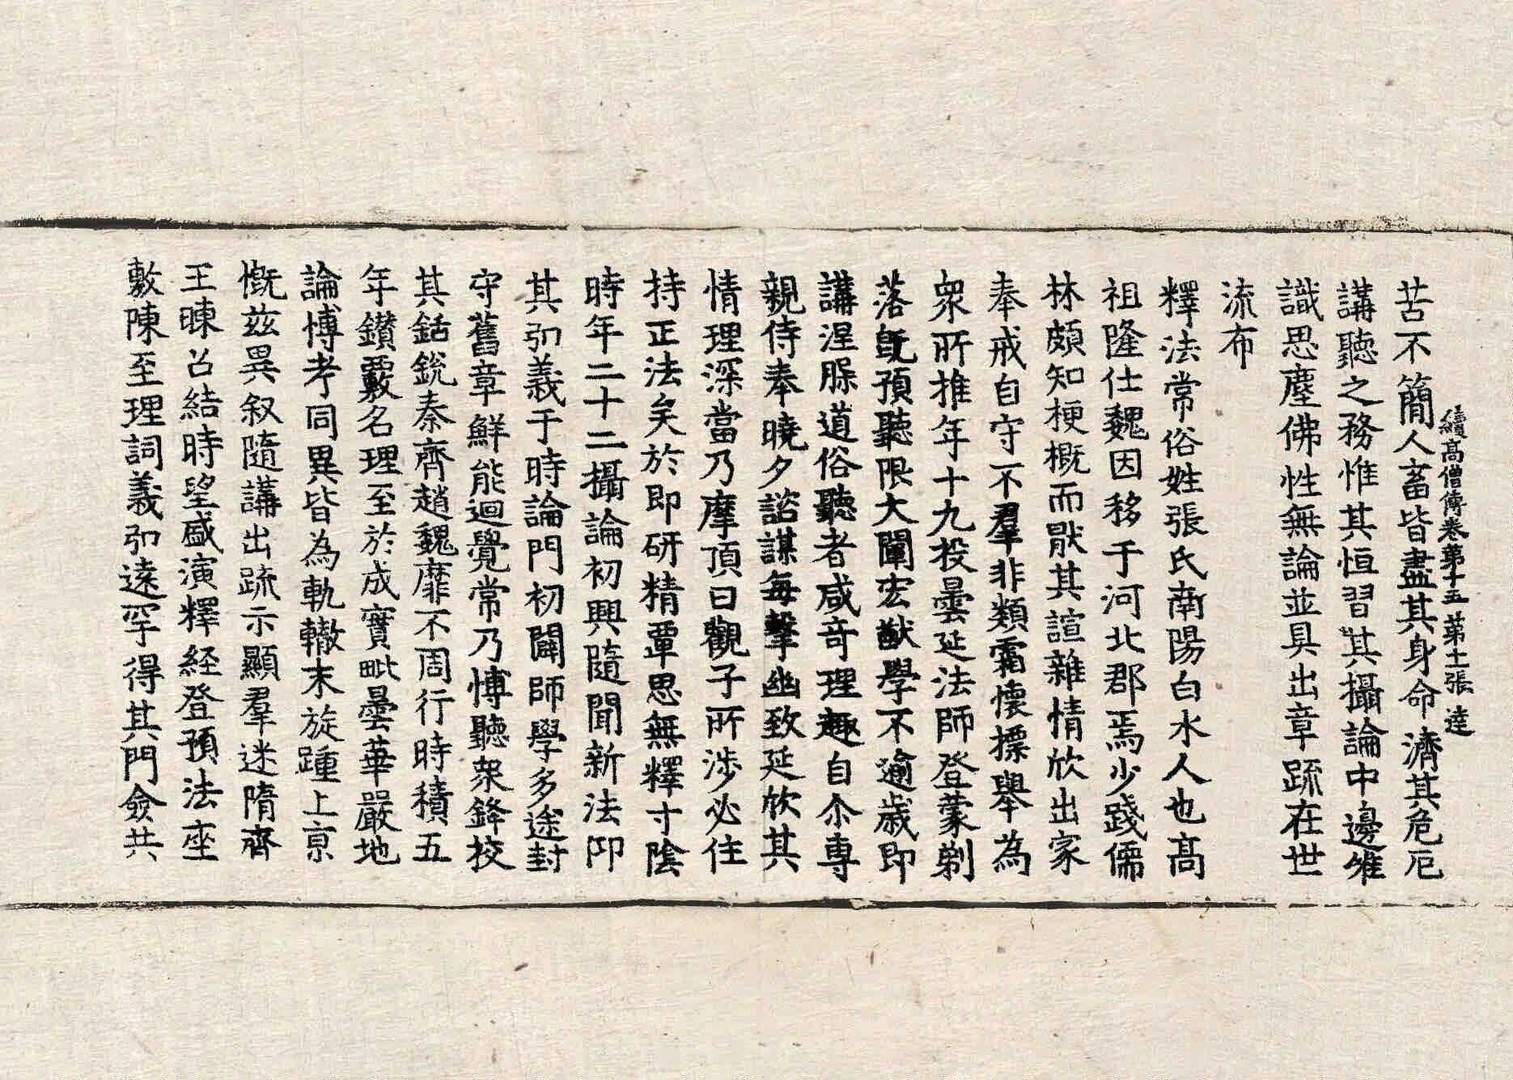 續高僧傳卷第十五 第十一張 達
苦不簡人畜皆盡其身命濟其危厄
講聽之務惟其恒習其攝論中邊唯
識思塵佛性無論並具出章䟽在世
流布
釋法常俗姓張氏南陽白水人也高
祖隆仕魏因移于河北郡焉少踐儒
林頗知梗概而厭其諠雜情欣出家
奉戒自守不羣非類霜懷摽舉為
衆所推年十九投曇延法師登蒙剃
落旣預聽限大闡宏猷學不逾歳即
講涅槃道俗聽者咸奇理趣自尒專
親侍奉曉夕諮謀每擊幽致延欣其
情理深當乃摩頂曰觀子所涉必住
持正法矣於即研精覃思無釋寸陰
時年二十二攝論初興隨聞新法仰
其弘義于時論門初闢師學多途封
守舊章鮮能迴覺常乃博聽衆鋒校
其銛銳秦齊趙魏靡不周行時積五
年鑚覈名理至於成實毗曇華嚴地
論博考同異皆為軌轍末旋踵上京
慨兹異叙隨講出䟽示顯羣迷隋齊
王暕召結時望盛演釋経登預法座
敷陳至理詞義弘遠罕得其門僉共